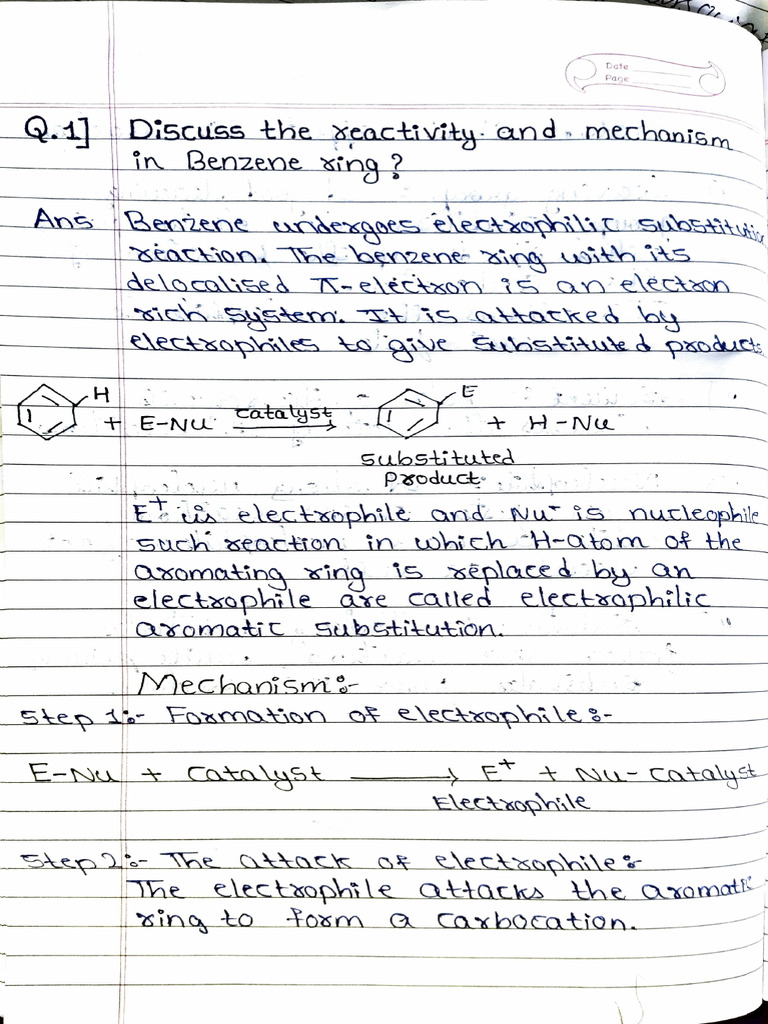 Date
Page
Q.1] Discuss the reactivity and mechanism
in Benzene ring?
Ans Benzene undergoes electrophilic substitution
reaction. The benzene ring with its
delocalised π-electron is an electron
rich system. It is attacked by
electrophiles to give substituted products
H + E-Nu catalyst E + H-Nu
substituted
product.
E⁺ is electrophile and Nu⁻ is nucleophile
such reaction in which H-atom of the
aromating ring is replaced by an
electrophile are called electrophilic
aromatic substitution.
Mechanism:-
Step 1:- Formation of electrophile:-
E-Nu + Catalyst → E⁺ + Nu-Catalyst
Electrophile
Step 2:- The attack of electrophile:-
The electrophile attacks the aromatic
ring to form a carbocation.